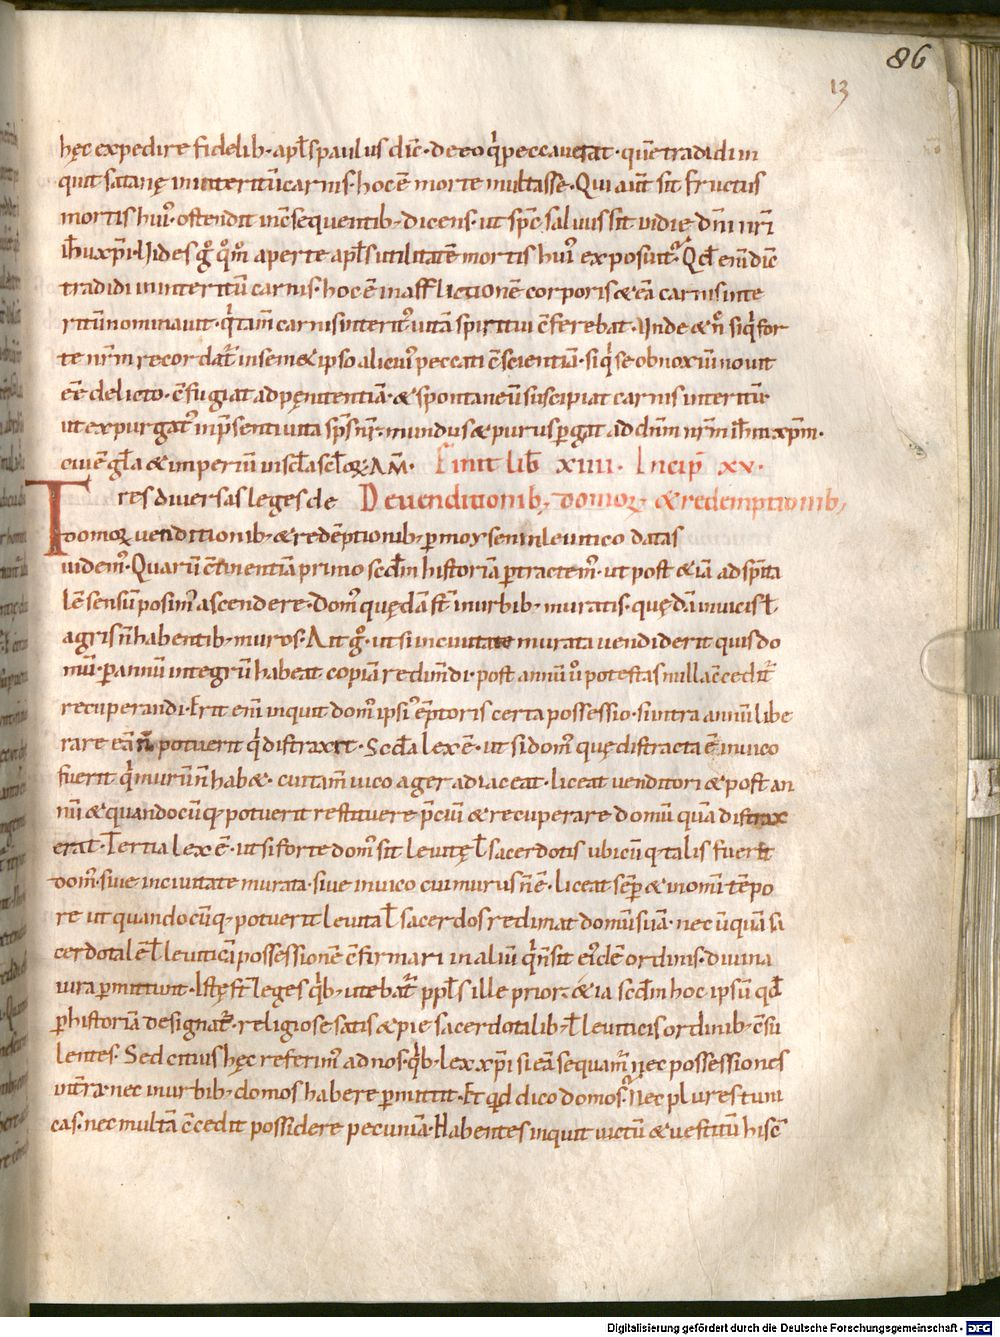 86
13
hęc expedire fidelib· apl̅s paulus dic̅· de eo q̇ peccauerat· que̅ tradidi in
quit satanę in interitu̅ carnis· hoc e̅ morte multasse· Qui aut̅ sit fructus
mortis hui᾽· ostendit inc̅sequentib; dicens· ut sp̅c saluus sit in die dn̅i nr̅i
ih̅u xp̅i· Uides g̊ qm̊ aperte apl̅s utilitate̅ mortis hui᾽ exposuit· Qd̅ eni̅ dic̅
tradidi in interitu̅ carnis· hoc e̅ in afflictione̅ corporis & ea̅ carnis inte
ritu̅ nominauit· q̇ tam̅ carnis interit᾽ uita̅ spiritui c̅ferebat· Unde & n̅r̅ siq̇ for
te nr̅m recordat᷑ in semet ipso alicui᾽ peccati c̅scientia̅· siq̇ se obnoxiu̅ nouit
ee̅ delicto· c̅fugiat ad pęnitentia̅· & spontaneu̅ suscipiat carnis interitu̅·
ut expurgat᾽ in p̅senti uita sp̅s nr̅· mundus & purus p̱gat ad dn̅m nr̅m ih̅m xp̅m·
cui e̅ gl̅a & imperiu̅ in sc̅la sc̅loꝝ· AM̅· Finit lib̅ xiiii· Incip̅ xv·
Tres diuersas leges de De uenditionib; domoꝝ & redemptionib;
domoꝝ uenditionib; & rede̅ptionib; p̱ moysen in leuitico datas
uidem᾽· Quaru̅ c̅tinentia̅ primo scd̅m historia̅ p̱tractem᾽· ut post &ia̅ ad sp̅ita
le̅ sensu̅ possim᾽ ascendere· Dom᾽ quęda̅ st̅ in urbib; muratis· quęda̅ in uicis ł
agris n̅ habentib; muros· Ait g̊· ut si in ciuitate murata uendiderit quis do
mu̅· p̱ annu̅ integru̅ habeat copia̅ redim̅di· post annu̅ u̇ potestas nulla c̅cedit᷑
recuperandi· Erit eni̅ inquit dom᾽ ipsi᾽ e̅ptoris certa possessio· si intra annu̅ libe
rare ea̅ n̅ potuerit q̇ distraxit· Scd̅a lex e̅· ut si dom᾽ quę distracta e̅ in uico
fuerit q̇ muru̅ n̅ hab&· cui tam̅ uico ager adiaceat· liceat uenditori & post an
nu̅ & quandocu̅q; potuerit restituere p̅ciu̅ & recuperare domu̅ qua̅ distrax
erat· Tertia lex e̅· ut si forte dom᾽ sit leuitę ł sacerdotis ubicu̅q; talis fuerit
dom᾽· siue in ciuitate murata· siue in uico cui murus n̅ e̅· liceat se̅p̱ & in omni te̅po
re ut quandocu̅q; potuerit leuita ł sacerdos redimat domu̅ sua̅· nec u̅qua̅ sa
cerdotale̅ ł leuitica̅ possessione̅ c̅firmari in aliu̅ q̇ n̅ sit ei᾽de̅ ordinis· diuina
iura p̱mittunt· Istę st̅ leges q̇b; utebat᷑ pp̅ls ille prior· &ia̅ scd̅m hoc ipsu̅ qd̅
p̱ historia̅ designat᷑· religiose satis & pie sacerdotalib; ł leuiticis ordinib; c̅su
lentes· Sed citius hęc referim᾽ ad nos· q̇b; lex xp̅i si ea̅ sequam᷑ nec possessiones
in t̅ra· nec in urbib; domos habere p̱mittit· Et qd̅ dico domos᾽· Nec plures tuni
cas· nec multa̅ c̅cedit possidere pecunia̅· Habentes inquit uictu̅ & uestitu̅ his c̅
Digitalisierung gefördert durch die Deutsche Forschungsgemeinschaft - DFG